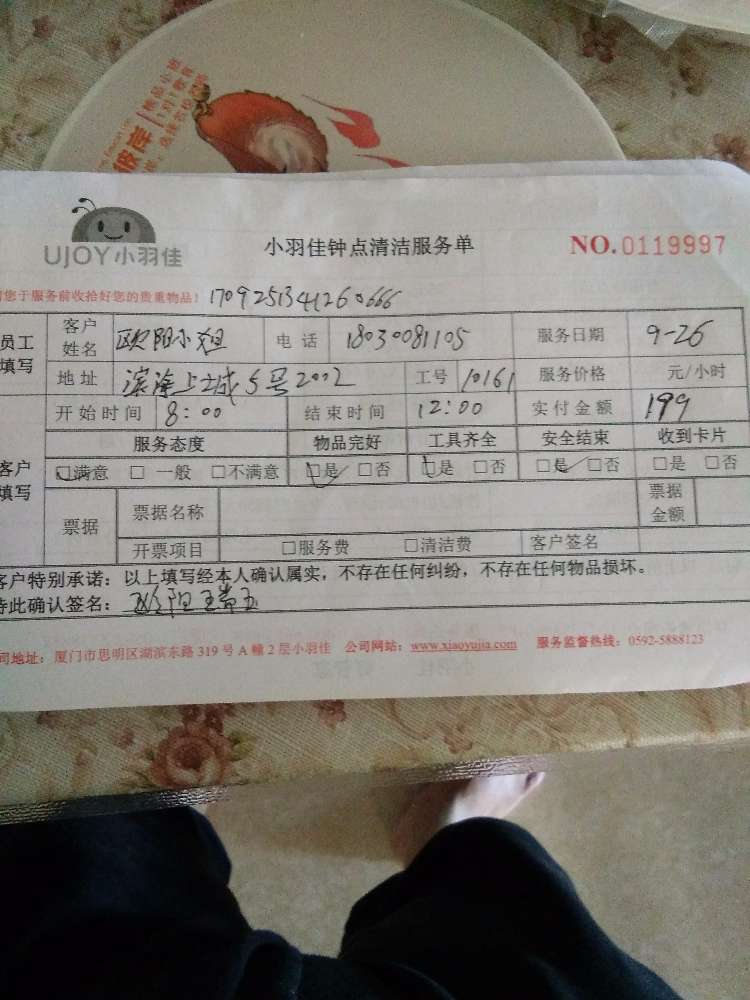 UJOY小羽佳
小羽佳钟点清洁服务单
NO.0119997
您于服务前收拾好您的贵重物品! 170925134126066 6
员工填写 客户姓名 欧阳小姐 电话 18030081105 服务日期 9-26
地址 滨涂上城5号2002 工号 10161 服务价格 元/小时
开始时间 8:00 结束时间 12:00 实付金额 199
客户填写 服务态度 物品完好 工具齐全 安全结束 收到卡片
□满意 □一般 □不满意 □是 □否 □是 □否 □是 □否 □是 □否
票据 票据名称 票据金额
开票项目 □服务费 □清洁费 客户签名
客户特别承诺：以上填写经本人确认属实，不存在任何纠纷，不存在任何物品损坏。
特此确认签名：欧阳瑞玉
司地址：厦门市思明区湖滨东路319号A幢2层小羽佳 公司网站：www.xiaoyujia.com 服务监督热线：0592-5888123